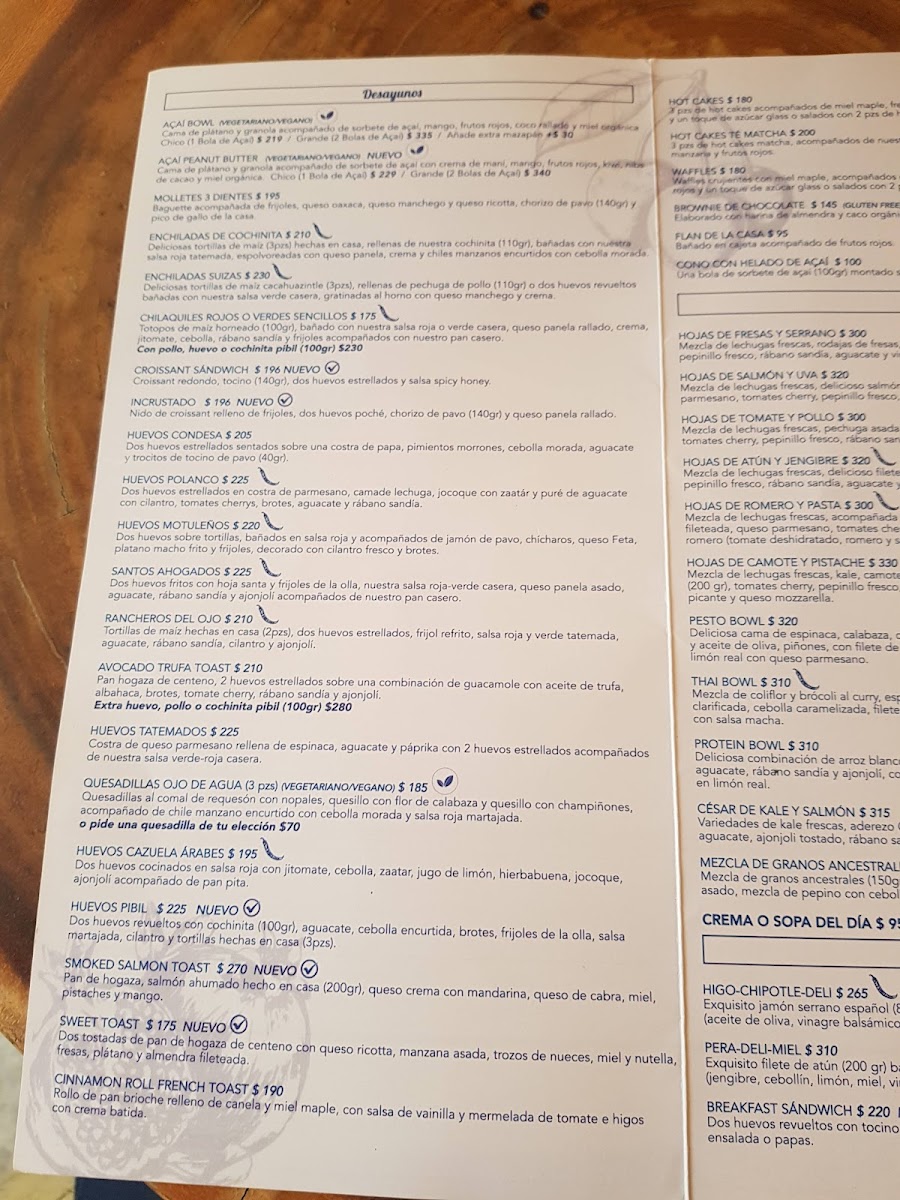 Desayunos
AÇAÍ BOWL (VEGETARIANO/VEGANO)
Cama de plátano y granola acompañado de sorbete de açaí, mango, frutos rojos, coco rallado y miel orgánica
Chico (1 Bola de Açaí) $ 219 / Grande (2 Bolas de Açaí) $ 335 / Añade extra mazapán +$ 30
AÇAÍ PEANUT BUTTER (VEGETARIANO/VEGANO) NUEVO
Cama de plátano y granola acompañado de sorbete de açaí con crema de maní, mango, frutos rojos, kiwi, nibs
de cacao y miel orgánica. Chico (1 Bola de Açaí) $ 229 / Grande (2 Bolas de Açaí) $ 340
MOLLETES 3 DIENTES $ 195
Baguette acompañada de frijoles, queso oaxaca, queso manchego y queso ricotta, chorizo de pavo (140gr) y
pico de gallo de la casa.
ENCHILADAS DE COCHINITA $ 210
Deliciosas tortillas de maíz (3pzs) hechas en casa, rellenas de nuestra cochinita (110gr), bañadas con nuestra
salsa roja tatemada, espolvoreadas con queso panela, crema y chiles manzanos encurtidos con cebolla morada.
ENCHILADAS SUIZAS $ 230
Deliciosas tortillas de maíz cacahuazintle (3pzs), rellenas de pechuga de pollo (110gr) o dos huevos revueltos
bañadas con nuestra salsa verde casera, gratinadas al horno con queso manchego y crema.
CHILAQUILES ROJOS O VERDES SENCILLOS $ 175
Totopos de maíz horneado (100gr), bañado con nuestra salsa roja o verde casera, queso panela rallado, crema,
jitomate, cebolla, rábano sandía y frijoles acompañados con nuestro pan casero.
Con pollo, huevo o cochinita pibil (100gr) $230
CROISSANT SÁNDWICH $ 196 NUEVO
Croissant redondo, tocino (140gr), dos huevos estrellados y salsa spicy honey.
INCRUSTADO $ 196 NUEVO
Nido de croissant relleno de frijoles, dos huevos poché, chorizo de pavo (140gr) y queso panela rallado.
HUEVOS CONDESA $ 205
Dos huevos estrellados sentados sobre una costra de papa, pimientos morrones, cebolla morada, aguacate
y trocitos de tocino de pavo (40gr).
HUEVOS POLANCO $ 225
Dos huevos estrellados en costra de parmesano, camade lechuga, jocoque con zaatár y puré de aguacate
con cilantro, tomates cherrys, brotes, aguacate y rábano sandía.
HUEVOS MOTULEÑOS $ 220
Dos huevos sobre tortillas, bañados en salsa roja y acompañados de jamón de pavo, chícharos, queso Feta,
platano macho frito y frijoles, decorado con cilantro fresco y brotes.
SANTOS AHOGADOS $ 225
Dos huevos fritos con hoja santa y frijoles de la olla, nuestra salsa roja-verde casera, queso panela asado,
aguacate, rábano sandía y ajonjolí acompañados de nuestro pan casero.
RANCHEROS DEL OJO $ 210
Tortillas de maíz hechas en casa (2pzs), dos huevos estrellados, frijol refrito, salsa roja y verde tatemada,
aguacate, rábano sandía, cilantro y ajonjolí.
AVOCADO TRUFA TOAST $ 210
Pan hogaza de centeno, 2 huevos estrellados sobre una combinación de guacamole con aceite de trufa,
albahaca, brotes, tomate cherry, rábano sandía y ajonjolí.
Extra huevo, pollo o cochinita pibil (100gr) $280
HUEVOS TATEMADOS $ 225
Costra de queso parmesano rellena de espinaca, aguacate y páprika con 2 huevos estrellados acompañados
de nuestra salsa verde-roja casera.
QUESADILLAS OJO DE AGUA (3 pzs) (VEGETARIANO/VEGANO) $ 185
Quesadillas al comal de requesón con nopales, quesillo con flor de calabaza y quesillo con champiñones,
acompañado de chile manzano encurtido con cebolla morada y salsa roja martajada.
o pide una quesadilla de tu elección $70
HUEVOS CAZUELA ÁRABES $ 195
Dos huevos cocinados en salsa roja con jitomate, cebolla, zaatar, jugo de limón, hierbabuena, jocoque,
ajonjolí acompañado de pan pita.
HUEVOS PIBIL $ 225 NUEVO
Dos huevos revueltos con cochinita (100gr), aguacate, cebolla encurtida, brotes, frijoles de la olla, salsa
martajada, cilantro y tortillas hechas en casa (3pzs).
SMOKED SALMON TOAST $ 270 NUEVO
Pan de hogaza, salmón ahumado hecho en casa (200gr), queso crema con mandarina, queso de cabra, miel,
pistaches y mango.
SWEET TOAST $ 175 NUEVO
Dos tostadas de pan de hogaza de centeno con queso ricotta, manzana asada, trozos de nueces, miel y nutella,
fresas, plátano y almendra fileteada.
CINNAMON ROLL FRENCH TOAST $ 190
Rollo de pan brioche relleno de canela y miel maple, con salsa de vainilla y mermelada de tomate e higos
con crema batida.
HOT CAKES $ 180
3 pzs de hot cakes acompañados de miel maple,
y un toque de azúcar glass o salados con 2 pzs de
HOT CAKES TÉ MATCHA $ 200
3 pzs de hot cakes matcha, acompañados de
manzana y frutos rojos.
WAFFLES $ 180
Waffles crujientes con miel maple, acompañados
rojos y un toque de azúcar glass o salados con 2
BROWNIE DE CHOCOLATE $ 145 (GLUTEN FREE
Elaborado con harina de almendra y caco
FLAN DE LA CASA $ 95
Bañado en cajeta acompañado de frutos rojos.
CONO CON HELADO DE AÇAÍ $ 100
Una bola de sorbete de açaí (100gr) montado
HOJAS DE FRESAS Y SERRANO $ 300
Mezcla de lechugas frescas, rodajas de fresas,
pepinillo fresco, rábano sandía, aguacate y
HOJAS DE SALMÓN Y UVA $ 320
Mezcla de lechugas frescas, delicioso
parmesano, tomates cherry, pepinillo fresco,
HOJAS DE TOMATE Y POLLO $ 300
Mezcla de lechugas frescas, pechuga asada
tomates cherry, pepinillo fresco, rábano
HOJAS DE ATÚN Y JENGIBRE $ 320
Mezcla de lechugas frescas, delicioso
pepinillo fresco, rábano sandía, aguacate y
HOJAS DE ROMERO Y PASTA $ 300
Mezcla de lechugas frescas, acompañada
fileteada, queso parmesano, tomates
romero (tomate deshidratado, romero y
HOJAS DE CAMOTE Y PISTACHE $ 330
Mezcla de lechugas frescas, kale,
(200 gr), tomates cherry, pepinillo fresco
picante y queso mozzarella.
PESTO BOWL $ 320
Deliciosa cama de espinaca, calabaza,
y aceite de oliva, piñones, con filete de
limón real con queso parmesano.
THAI BOWL $ 310
Mezcla de coliflor y brócoli al curry,
clarificada, cebolla caramelizada,
con salsa macha.
PROTEIN BOWL $ 310
Deliciosa combinación de arroz
aguacate, rábano sandía y ajonjolí,
en limón real.
CÉSAR DE KALE Y SALMÓN $ 315
Variedades de kale frescas, aderezo
aguacate, ajonjolí tostado, rábano
MEZCLA DE GRANOS
Mezcla de granos ancestrales
asado, mezcla de pepino con
CREMA O SOPA DEL DÍA $
HIGO-CHIPOTLE-DELI $ 265
Exquisito jamón serrano español
(aceite de oliva, vinagre
PERA-DELI-MIEL $ 310
Exquisito filete de atún (200 gr)
(jengibre, cebollín, limón, miel,
BREAKFAST SÁNDWICH $ 220
Dos huevos revueltos con tocino
ensalada o papas.